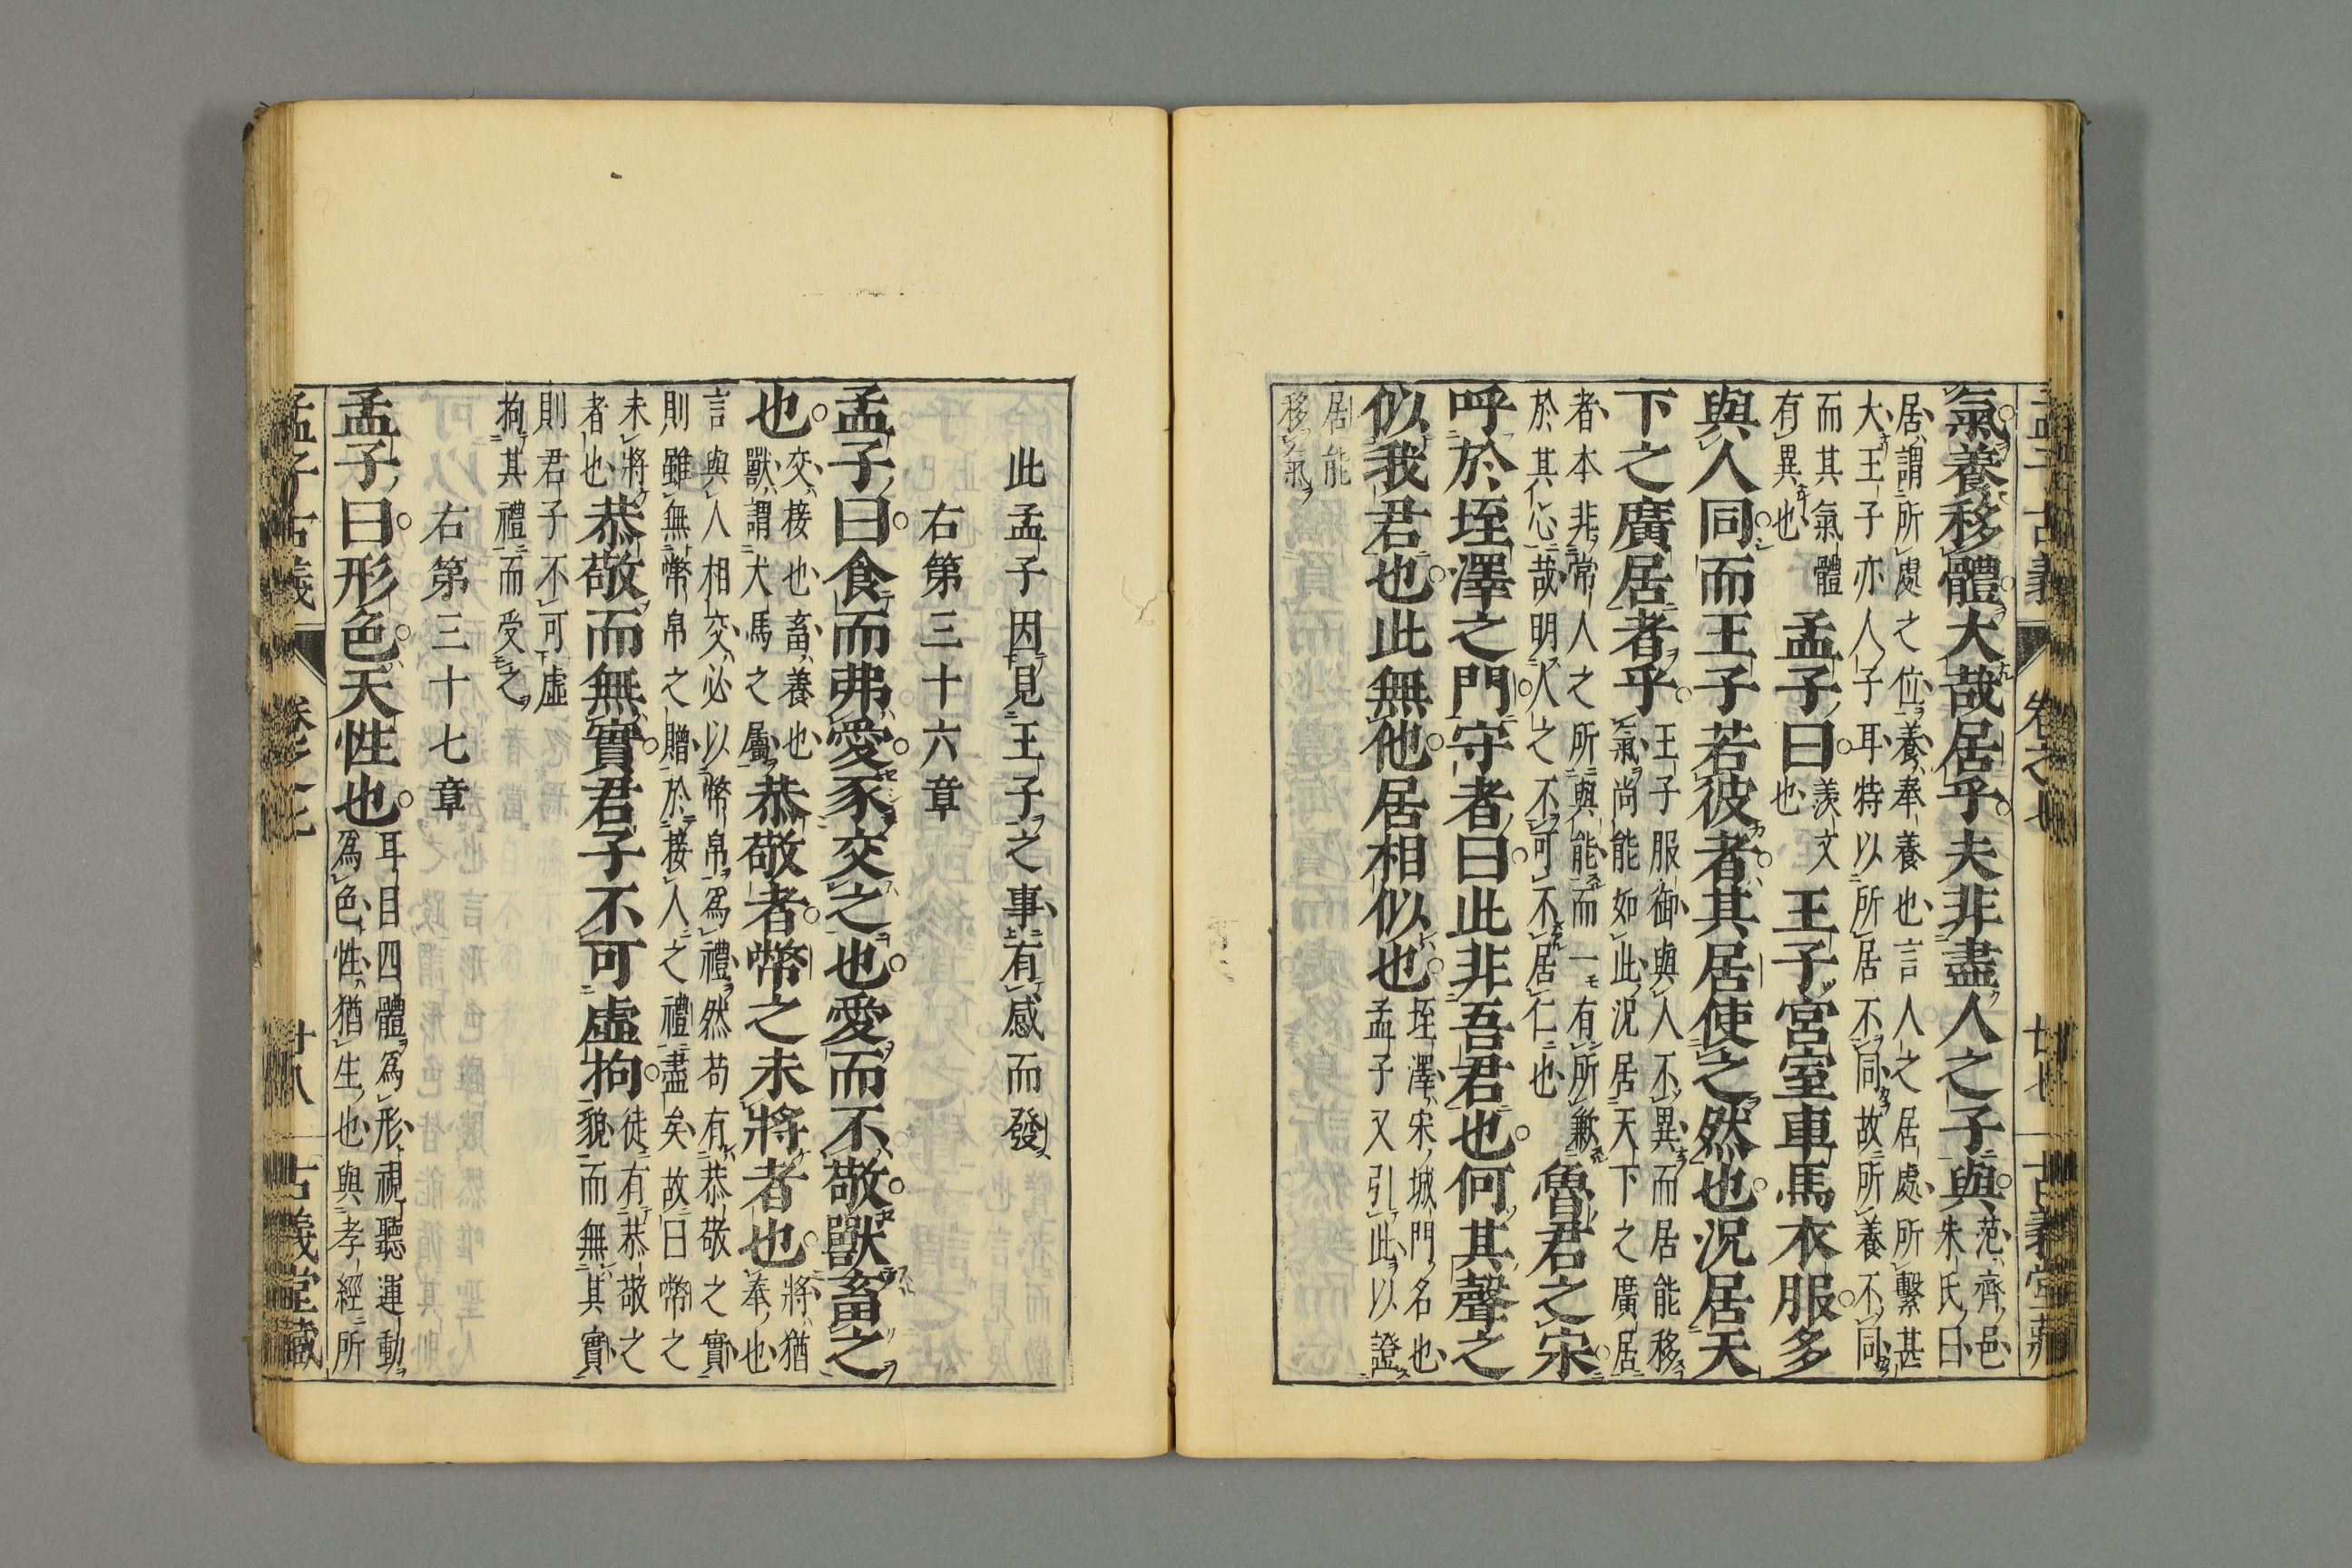 孟子古義　卷之七　廿七　古義堂藏
氣養移體大哉居乎夫非盡人之子與范齊邑朱氏曰
居謂所處之位養奉養也言人之居處所繫甚
大王子亦人子耳特以所居不同故所養不同
而其氣體有異也孟子曰羨文也王子宮室車馬衣服多
與人同而王子若彼者其居使之然也況居天
下之廣居者乎王子服御與人不異而居能移氣尚能如此況居天下之廣居
者本非常人之所與能而一有所歉於其心哉明人之不可不居仁也魯君之宋
呼於垤澤之門守者曰此非吾君也何其聲之
似我君也此無他居相似也垤澤宋城門名也孟子又引此以證
居能
移氣
此孟子因見王子之事有感而發
右第三十六章
孟子曰食而弗愛豕交之也愛而不敬獸畜之
也交接也畜養也獸謂犬馬之屬恭敬者幣之未將者也將猶奉也
言與人相交必以幣帛爲禮然苟有恭敬之實
則雖無幣帛之贈於接人之禮盡矣故曰幣之
未將者也恭敬而無實君子不可虛拘徒有恭敬之貌而無其實
則君子不可虛
拘其禮而受之
右第三十七章
孟子曰形色天性也耳目四體爲形視聽運動爲色性猶生也與孝經所
孟子古義　卷之七　廿八　古義堂藏